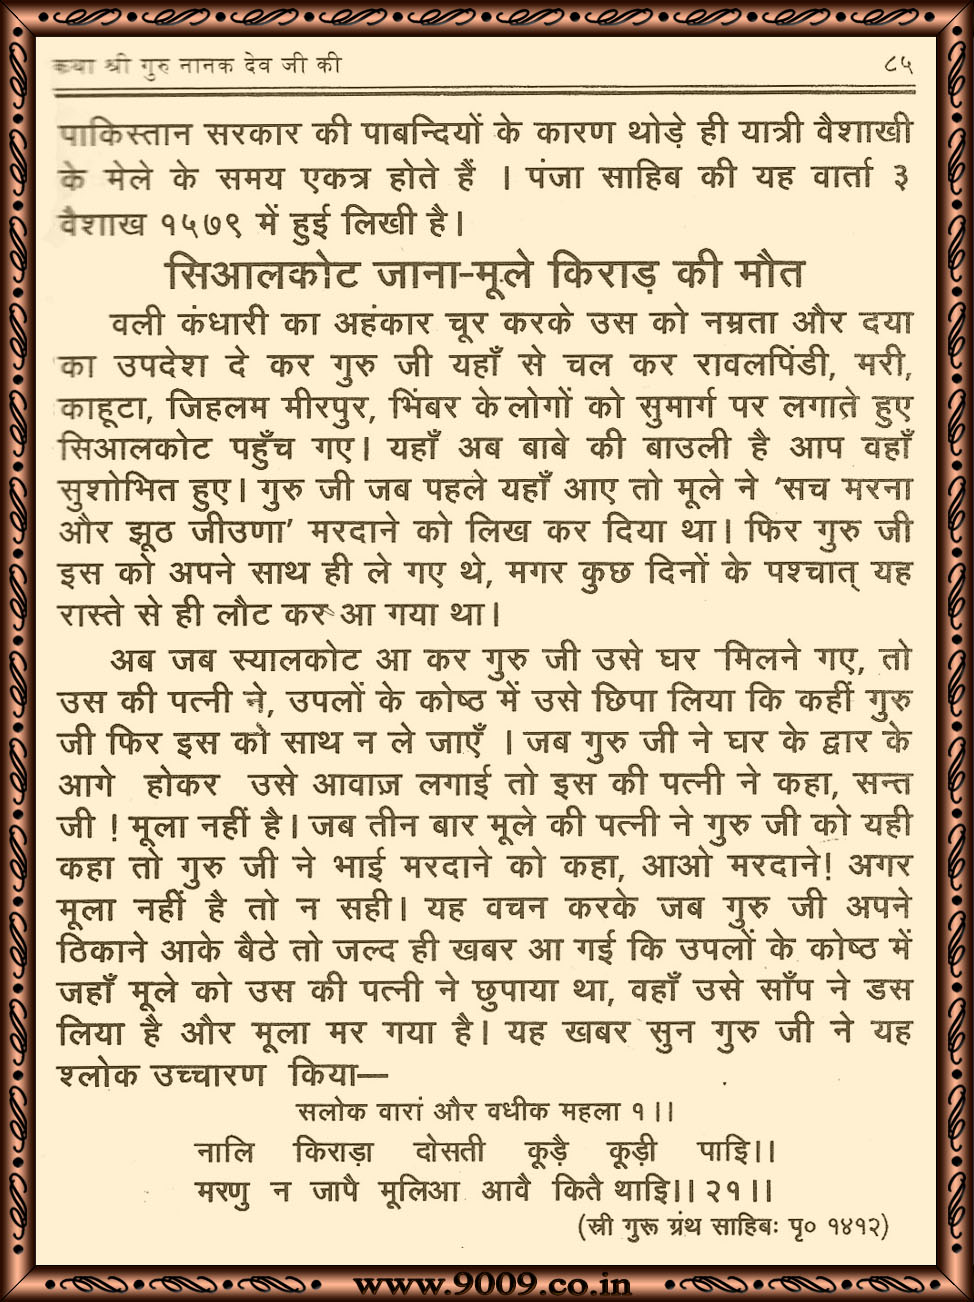 कथा श्री गुरु नानक देव जी की ८५
पाकिस्तान सरकार की पाबन्दियों के कारण थोड़े ही यात्री वैशाखी
के मेले के समय एकत्र होते हैं । पंजा साहिब की यह वार्ता ३
वैशाख १५७९ में हुई लिखी है।
सिआलकोट जाना-मूले किराड़ की मौत
वली कंधारी का अहंकार चूर करके उस को नम्रता और दया
का उपदेश दे कर गुरु जी यहाँ से चल कर रावलपिंडी, मरी,
काहूटा, जिहलम मीरपुर, भिंबर के लोगों को सुमार्ग पर लगाते हुए
सिआलकोट पहुँच गए। यहाँ अब बाबे की बाउली है आप वहाँ
सुशोभित हुए। गुरु जी जब पहले यहाँ आए तो मूले ने ‘सच मरना
और झूठ जीउणा’ मरदाने को लिख कर दिया था। फिर गुरु जी
इस को अपने साथ ही ले गए थे, मगर कुछ दिनों के पश्चात् यह
रास्ते से ही लौट कर आ गया था।
अब जब स्यालकोट आ कर गुरु जी उसे घर मिलने गए, तो
उस की पत्नी ने, उपलों के कोष्ठ में उसे छिपा लिया कि कहीं गुरु
जी फिर इस को साथ न ले जाएँ । जब गुरु जी ने घर के द्वार के
आगे होकर उसे आवाज़ लगाई तो इस की पत्नी ने कहा, सन्त
जी ! मूला नहीं है। जब तीन बार मूले की पत्नी ने गुरु जी को यही
कहा तो गुरु जी ने भाई मरदाने को कहा, आओ मरदाने! अगर
मूला नहीं है तो न सही। यह वचन करके जब गुरु जी अपने
ठिकाने आके बैठे तो जल्द ही खबर आ गई कि उपलों के कोष्ठ में
जहाँ मूले को उस की पत्नी ने छुपाया था, वहाँ उसे साँप ने डस
लिया है और मूला मर गया है। यह खबर सुन गुरु जी ने यह
श्लोक उच्चारण किया—
सलोक वारां और वधीक महला १।।
नालि किराड़ा दोसती कूड़ै कूड़ी पाइि।।
मरणु न जापै मूलिआ आवै कितै थाइि।। २१।।
(स्री गुरू ग्रंथ साहिबः पृ० १४१२)
www.9009.co.in